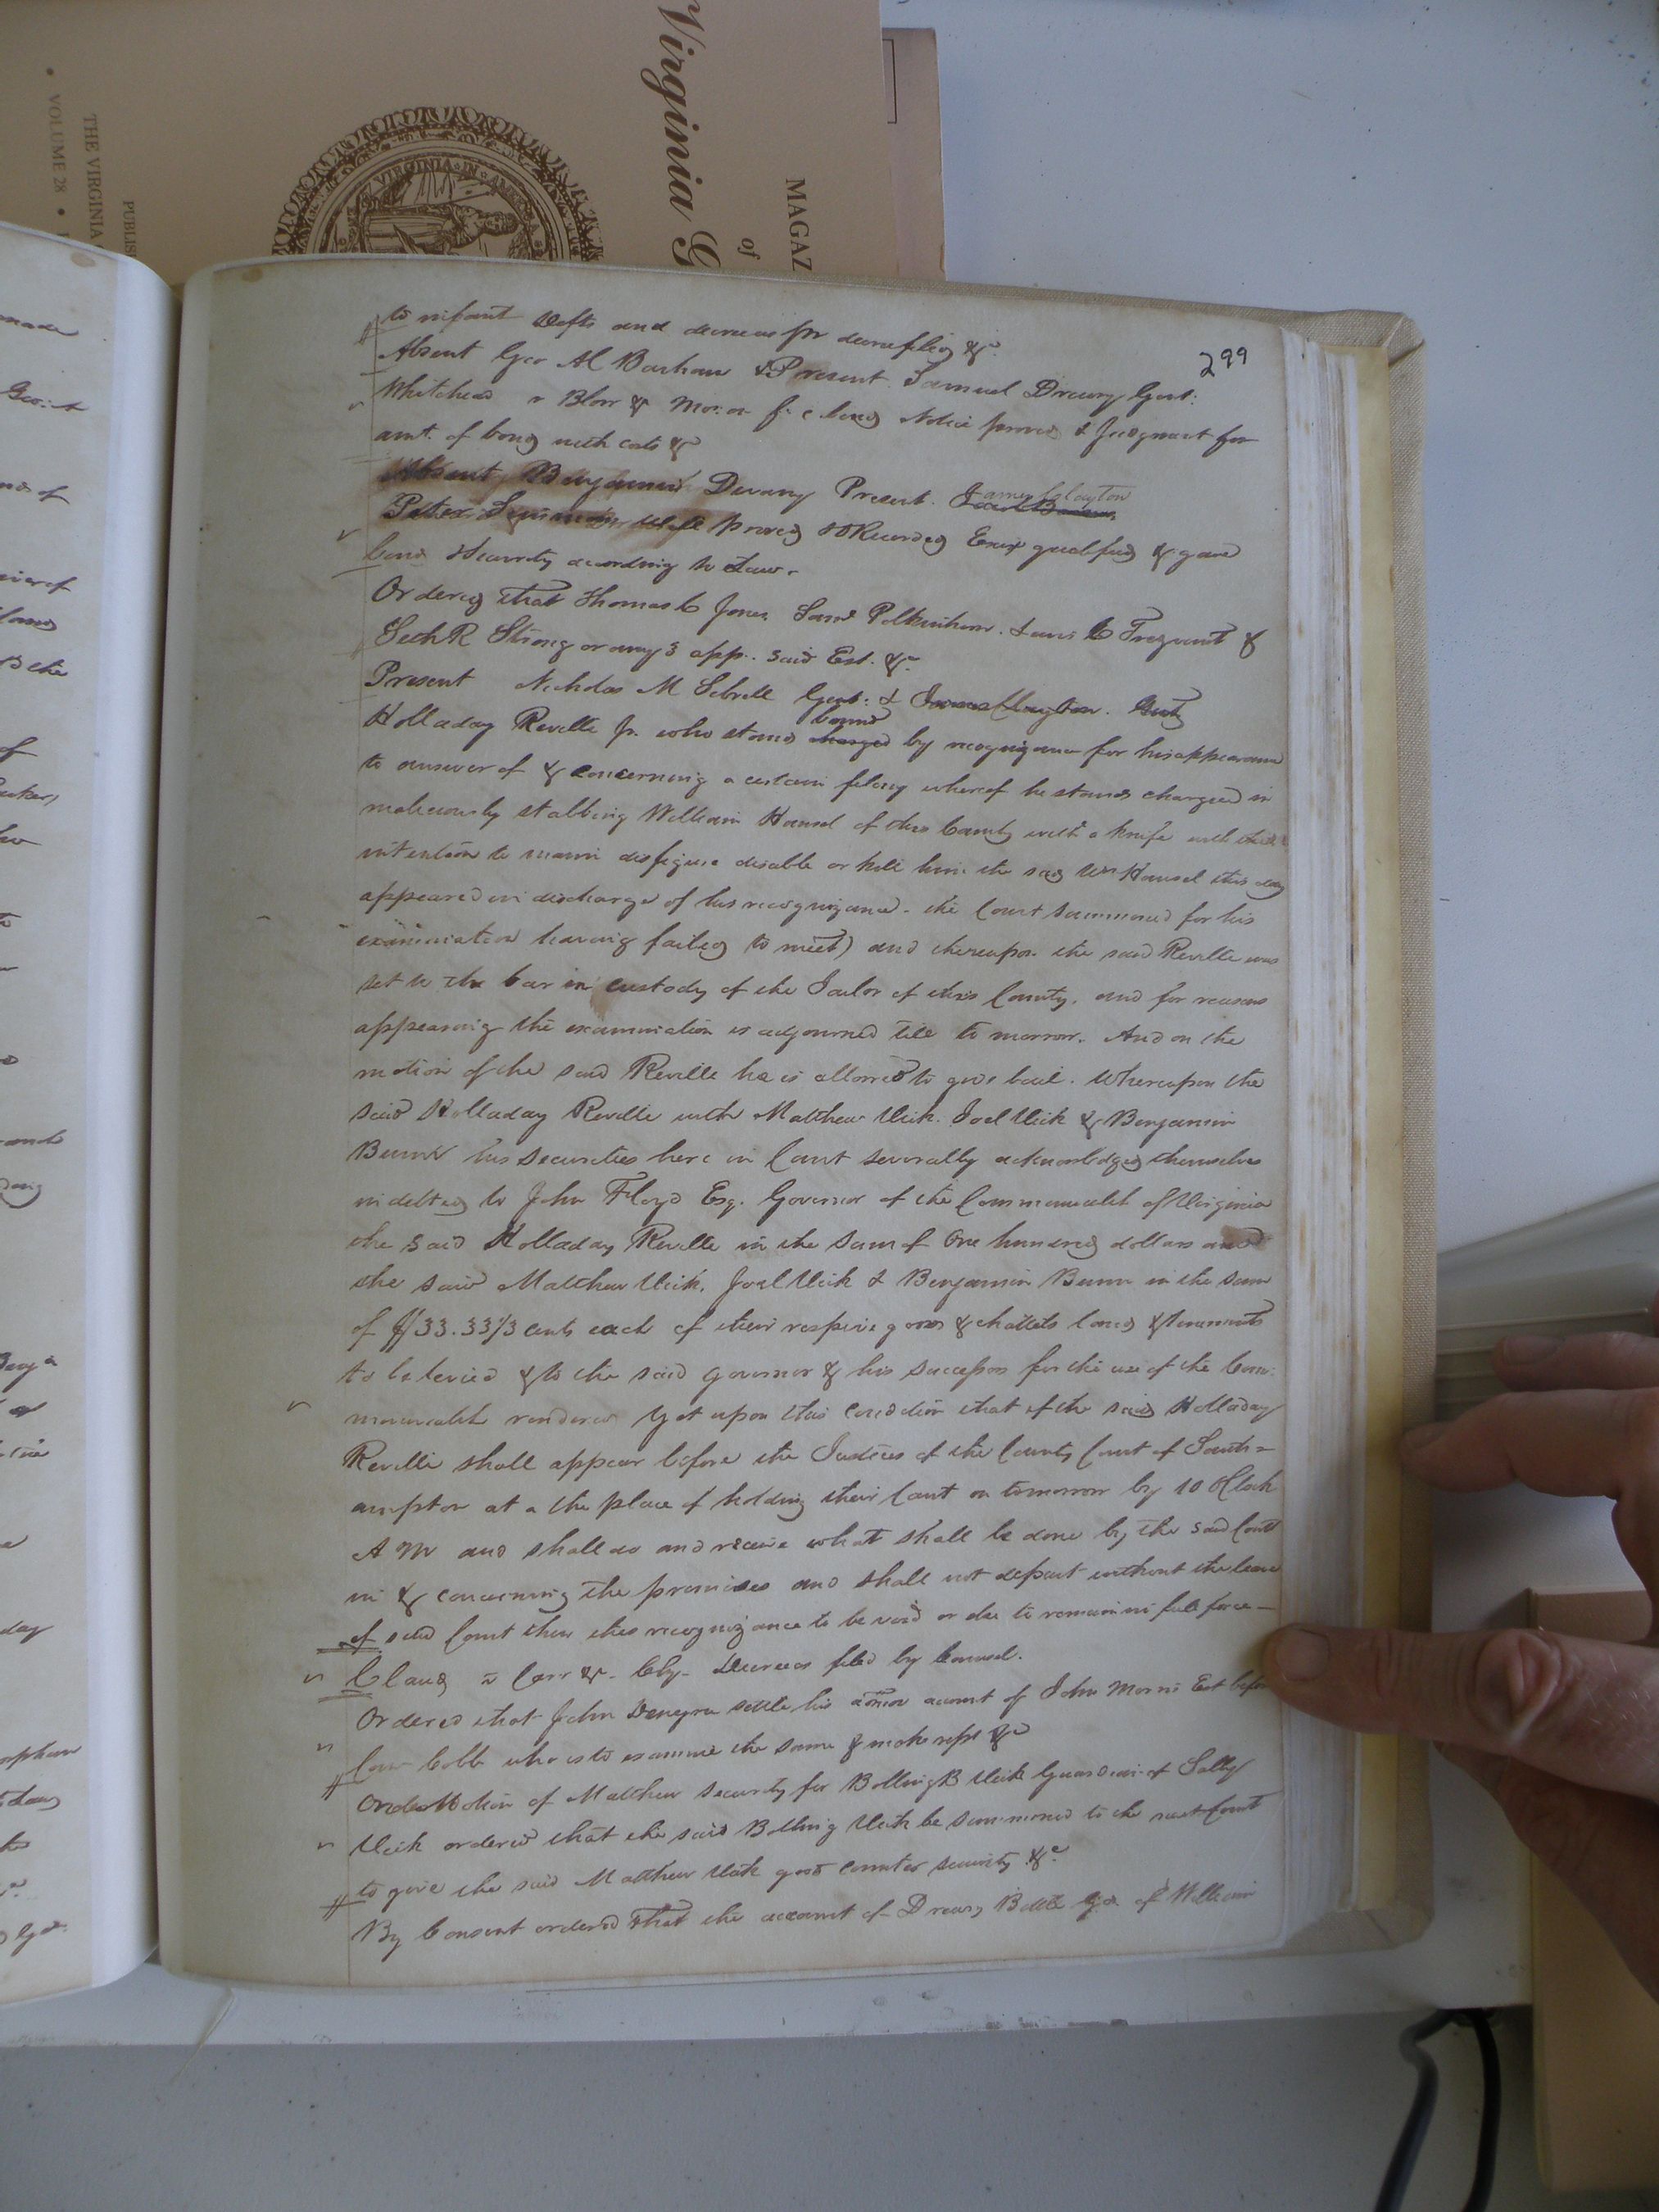 Virginia G
MAGAZ
of
PUBLIS
THE VIRGINIA
VOLUME 28
VIRGINIA IN
299
to infant Defts and decree for decree filed &c.
Absent Geo Al Barham & Present Samuel Drewry Gent:
Whitehead v Blow & Mo: on f: c bond Notice proved & Judgment for
amt. of bond with costs &c
Absent Benjamin Devany Present. James Clayton
Peter Simmons Will proved & O Recorded Exix qualified & gave
bond & Security according to Law.
Ordered that Thomas C Jones Saml Polkinhorn. Lewis C Trezvant &
Seth R Strong or any 3 app. said Est. &c.
Present Nicholas M Sebrell Gent: & James Clayton. Gent
Holladay Reville Jr. who stands charged bound by recognizance for his appearance
to answer of & concerning a certain felony whereof he stands charged in
maliciously stabbing William Hansel of this County with a knife with
intention to maim disfigure disable or kill him the said Wm Hansel this day
appeared in discharge of his recognizance - the Court summoned for his
examination having failed to meet) and thereupon the said Reville was
set to the bar in custody of the Jailor of this County. and for reasons
appearing the examination is adjourned till to morrow. And on the
motion of the said Reville he is allowed to give bail. Whereupon the
said Holladay Reville with Matthew Vick. Joel Vick & Benjamin
Bunn his securities here in Court severally acknowledged themselves
indebted to John Floyd Esq. Governor of the Commonwealth of Virginia
the said Holladay Reville in the sum of One hundred dollars and
the said Matthew Vick, Joel Vick & Benjamin Bunn in the sum
of $33.33 1/3 cents each of their respive goods & chattels lands & tenements
to be levied & to the said governor & his successors for the use of the Com:
monwealth rendered Yet upon this condition that if the said Holladay
Reville shall appear before the Justices of the County Court of South=
ampton at a the place of holding their Court on tomorrow by 10 OClock
A M and shall do and receive what shall be done by the said Court
in & concerning the premises and shall not depart without the leave
of said Court then this recognizance to be void or else to remain in full force -
Claud v Carr &c. Chy. Decrees filed by Counsel.
Ordered that John Denegre settle his admon account of John Morris Est before
Law Cobb who is to examine the same & make rept &c
Motion of Matthew security for Bolling B Vick Guardian of Sally
Vick ordered that the said Bolling Vick be summoned to the next Court
to give the said Matthew Vick good counter security &c.
By Consent ordered that the account of Drewry Battle gd. of William